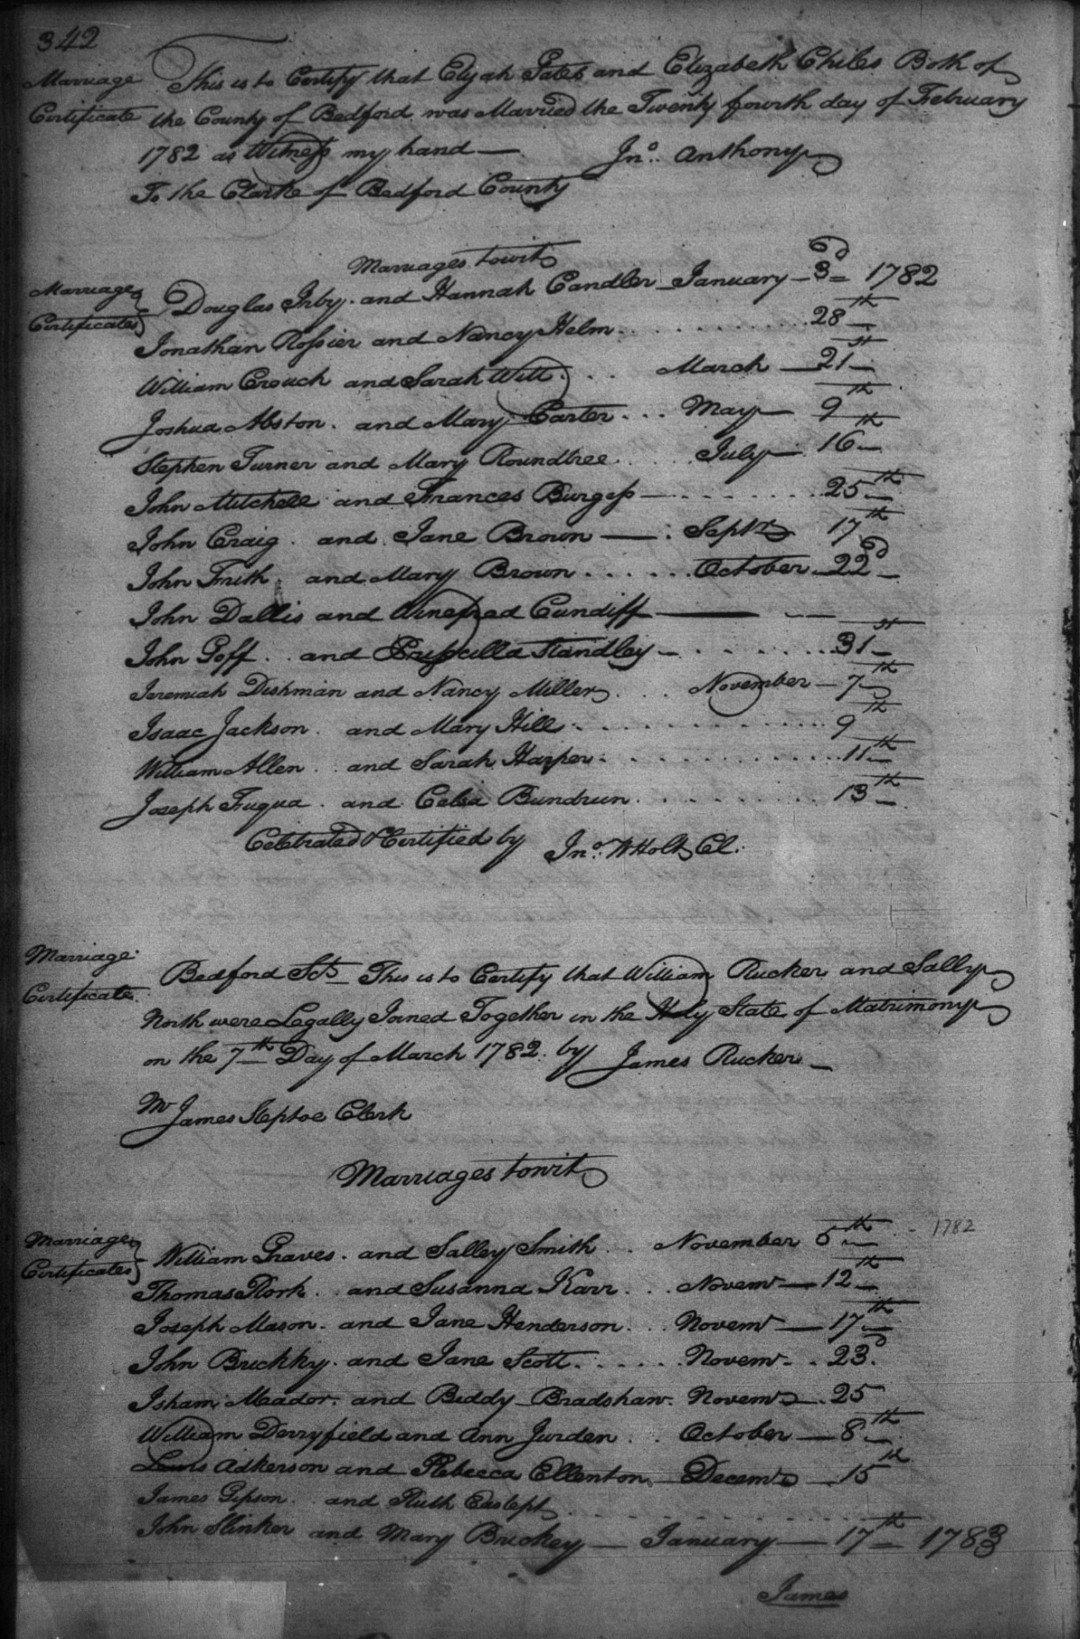 342
Marriage Certificate
This is to Certify that Elijah Pates and Elizabeth Chiles Both of
the County of Bedford was Married the Twenty fourth day of February
1782 as Witness my hand — Jno. Anthony
To the Clarke of Bedford County
Marriages towit
Marriage Certificates
Douglas Irby. and Hannah Candler January – 3d = 1782
Jonathan Rossier and Nancy Helm 28th
William Crouch and Sarah Witt March — 21st
Joshua Abston. and Mary Carter May — 9th
Stephen Turner and Mary Roundtree July — 16th
John Mitchell and Frances Burgess — 25th
John Craig. and Jane Brown — Septr 17th
John Frith and Mary Brown October 22d
John Dallis and Cundiff —
John Goff.. and Priscilla Standley — 31st
Jeremiah Dishman and Nancy Miller November — 7th
Isaac Jackson. and Mary Hill 9th
William Allen.. and Sarah Harper 11th
Joseph Fuqua. and Celia Bundrun 13th
Celebrated & Certified by Jno. Holt Cl.
Marriage Certificate
Bedford Sct. This is to Certify that William Rucker and Sally
North were Legally Joined Together in the Holy State of Matrimony
on the 7th Day of March 1782. by James Rucker —
Mr James Steptoe Clerk
Marriages towit
Marriage Certificates
William Graves. and Salley Smith... November 5th 1782
Thomas and Susanna Karr... Novemr — 12th
Joseph Mason. and Jane Henderson... Novemr — 17th
John Buckky. and Jane Scott Novemr 23d.
Isham Meador. and Biddy Bradshaw. Novemr 25
William Derryfield and Ann Jurden.. October — 8th
Lewis Adkerson and Rebecca Ellenton Decemr 15th
James Gipson... and Ruth Eastept
John Slinker and Mary Bruckey — January — 17th 1783
James